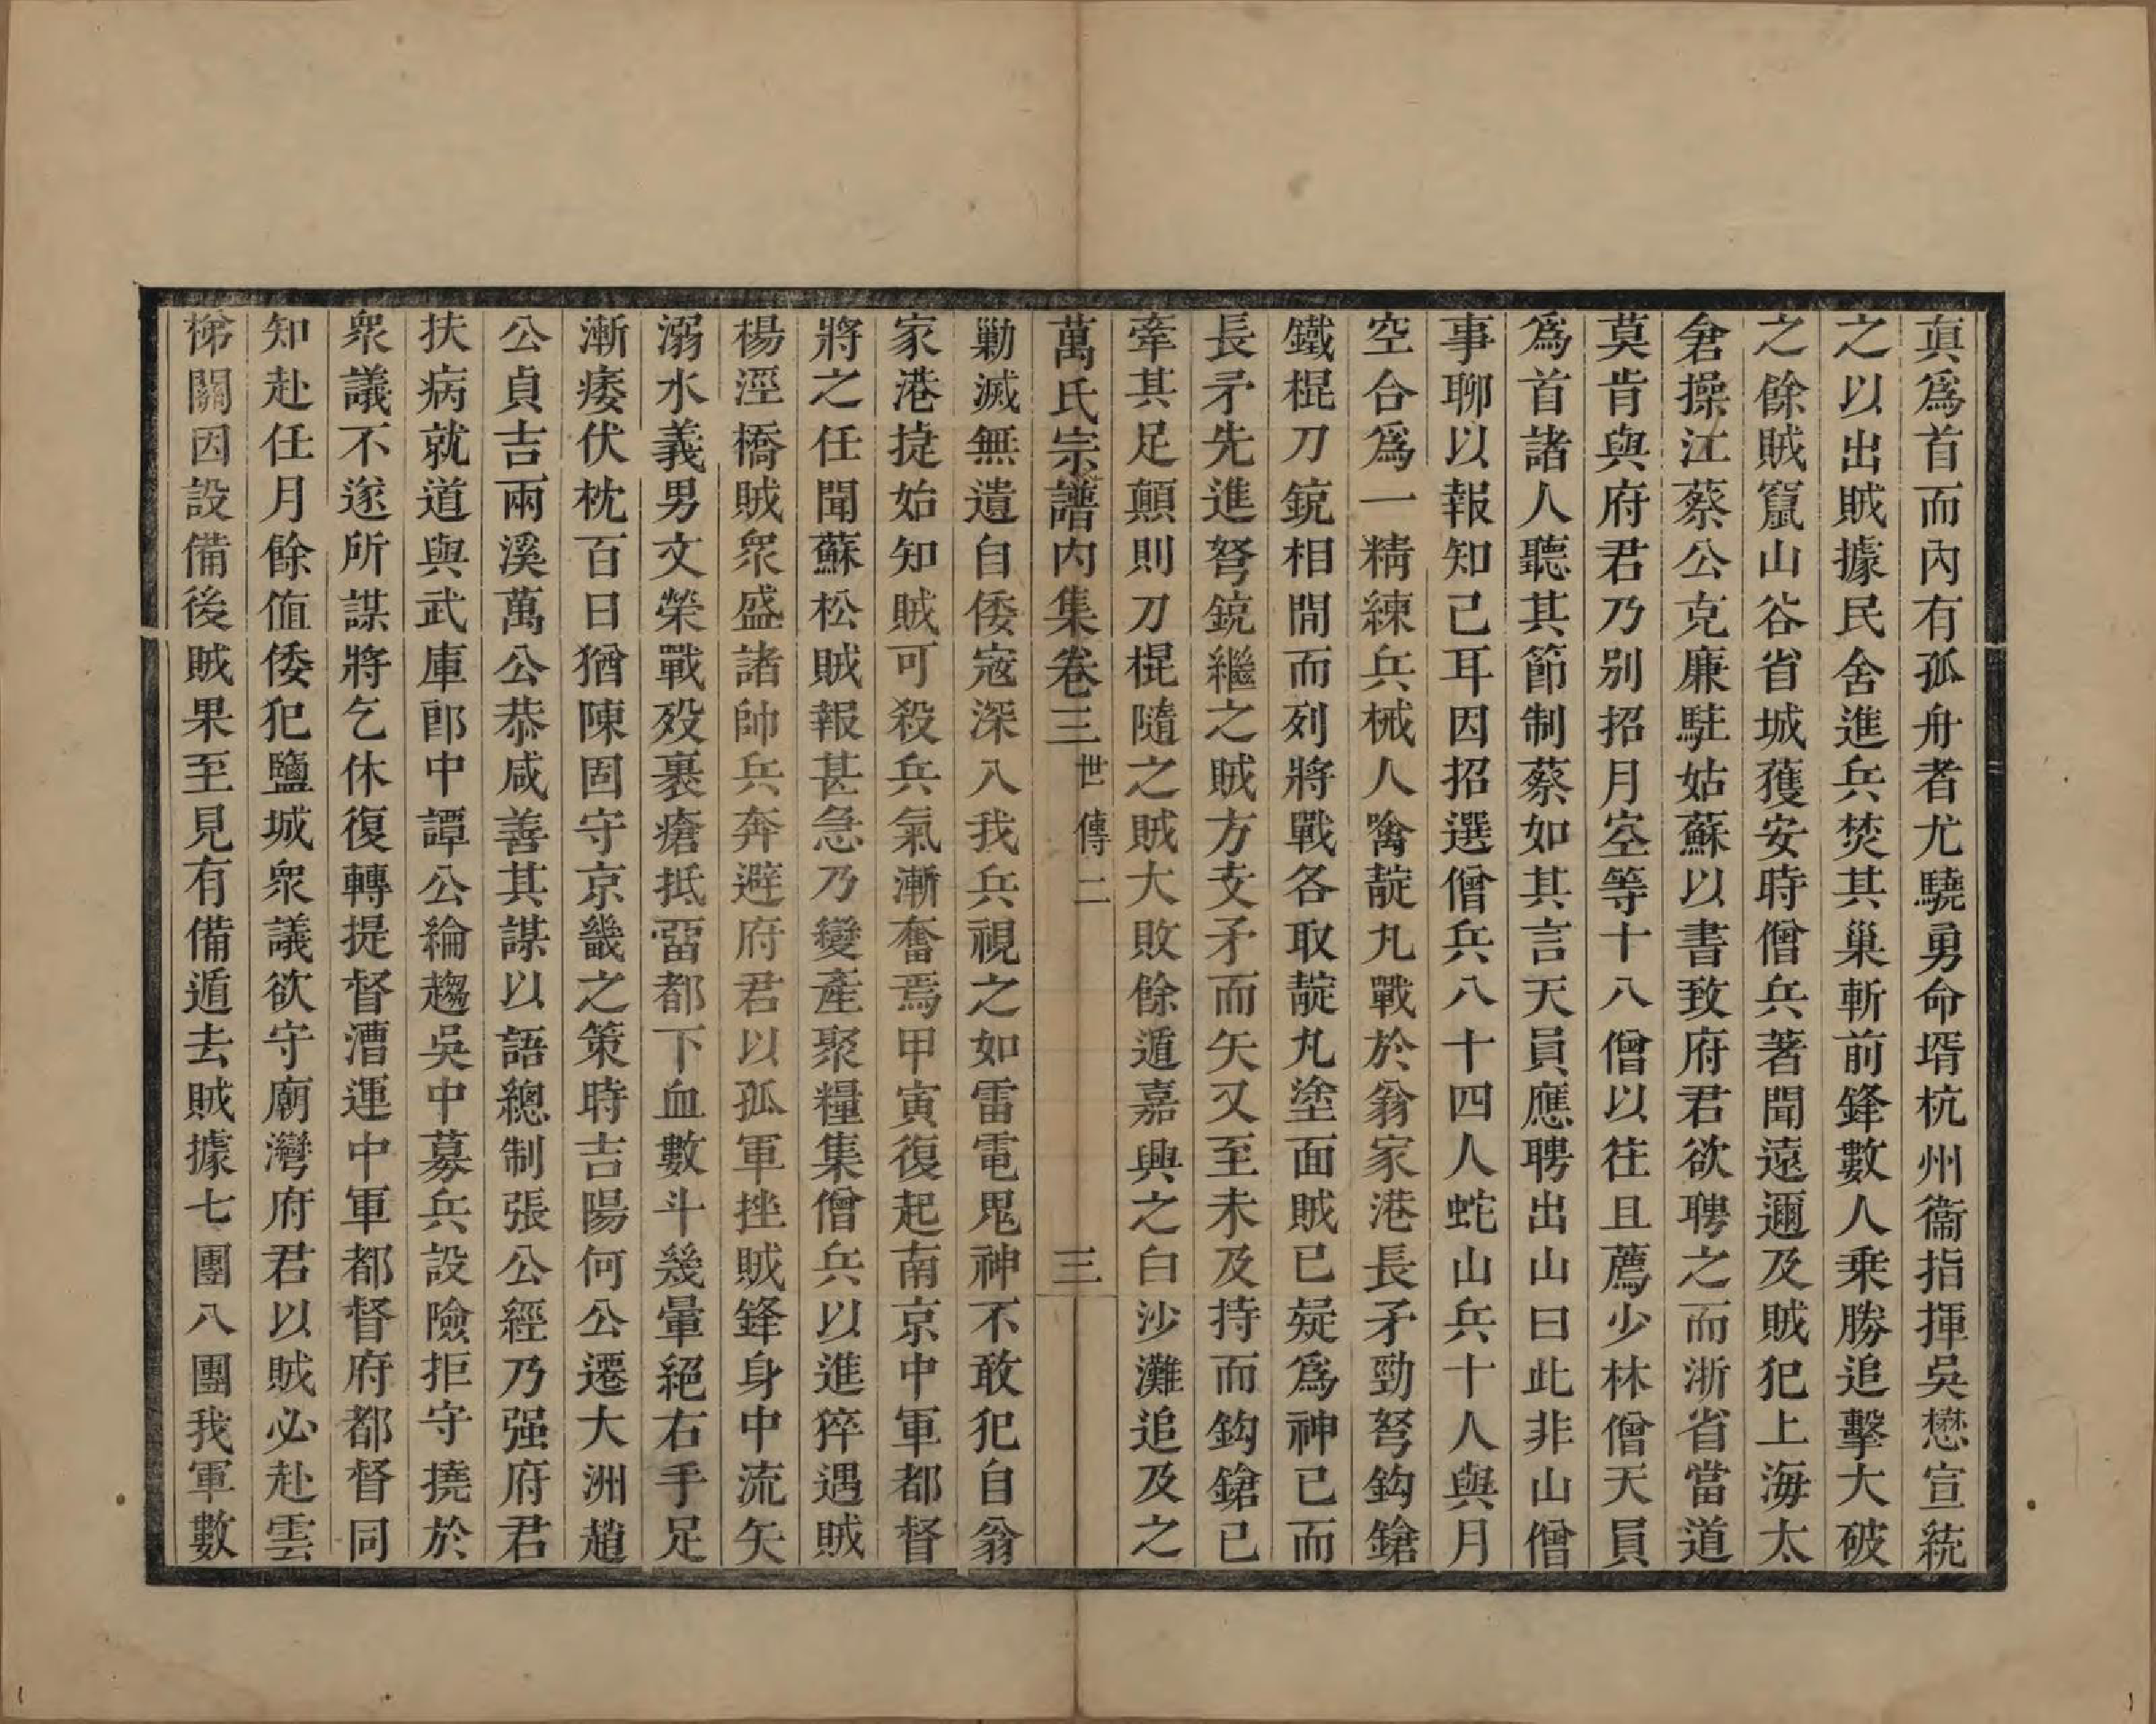 眞爲首而內有孤舟者尤驍勇命壻杭州衞指揮吳懋宣統
之以出賊據民舍進兵焚其巢斬前鋒數人乘勝追擊大破
之餘賊竄山谷省城獲安時僧兵著聞遠邇及賊犯上海太
倉操江蔡公克廉駐姑蘇以書致府君欲聘之而浙省當道
莫肯與府君乃別招月空等十八僧以往且薦少林僧天員
爲首諸人聽其節制蔡如其言天員應聘出山曰此非山僧
事聊以報知己耳因招選僧兵八十四人蛇山兵十人與月
空合爲一精練兵械人噙靛丸戰於翁家港長矛勁弩鈎鎗
鐵棍刀銃相間而列將戰各取靛丸塗面賊已疑爲神已而
長矛先進弩銃繼之賊方支矛而矢又至未及持而鈎鎗已
牽其足顚則刀棍隨之賊大敗餘遁嘉興之白沙灘追及之
萬氏宗譜內集卷三 世傳二 三
勦滅無遺自倭寇深入我兵視之如雷電鬼神不敢犯自翁
家港捷始知賊可殺兵氣漸奮焉甲寅復起南京中軍都督
將之任聞蘇松賊報甚急乃變產聚糧集僧兵以進猝遇賊
楊涇橋賊衆盛諸帥兵奔避府君以孤軍挫賊鋒身中流矢
溺水義男文榮戰歿裹瘡抵留都下血數斗幾暈絕右手足
漸痿伏枕百日猶陳固守京畿之策時吉陽何公遷大洲趙
公貞吉兩溪萬公恭咸善其謀以語總制張公經乃强府君
扶病就道與武庫郎中譚公綸趨吳中募兵設險拒守撓於
衆議不遂所謀將乞休復轉提督漕運中軍都督府都督同
知赴任月餘値倭犯鹽城衆議欲守廟灣府君以賊必赴雲
梯關因設備後賊果至見有備遁去賊據七團八團我軍數